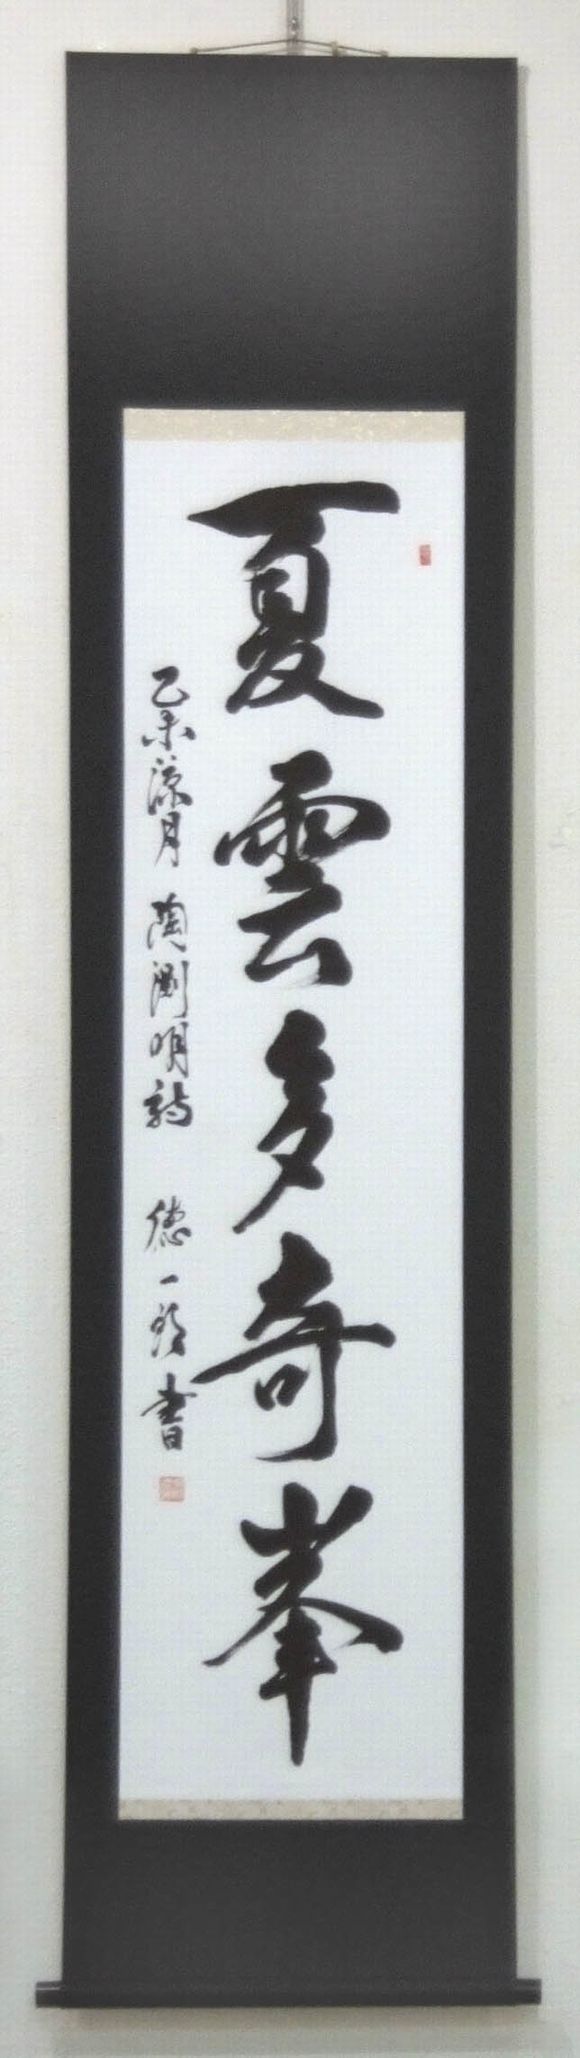 夏雲多奇峯
乙未涼月 陶淵明詩 徳一郎書